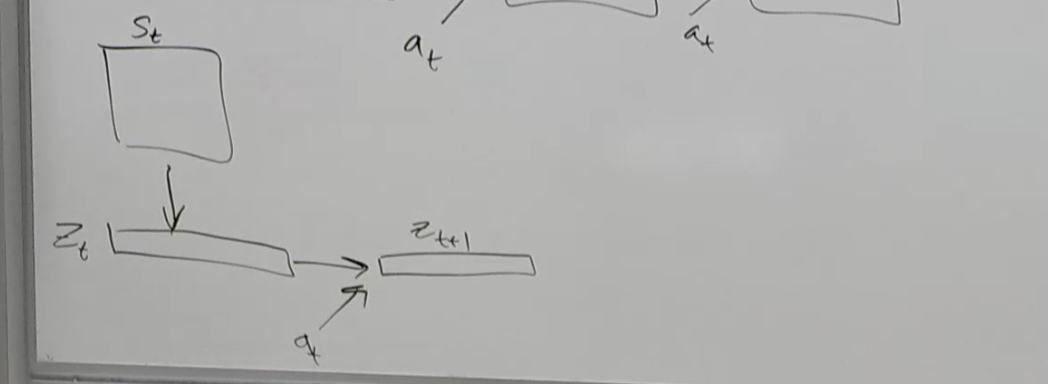 S_t
a_t
a_t
Z_t
z_{t+1}
a_t